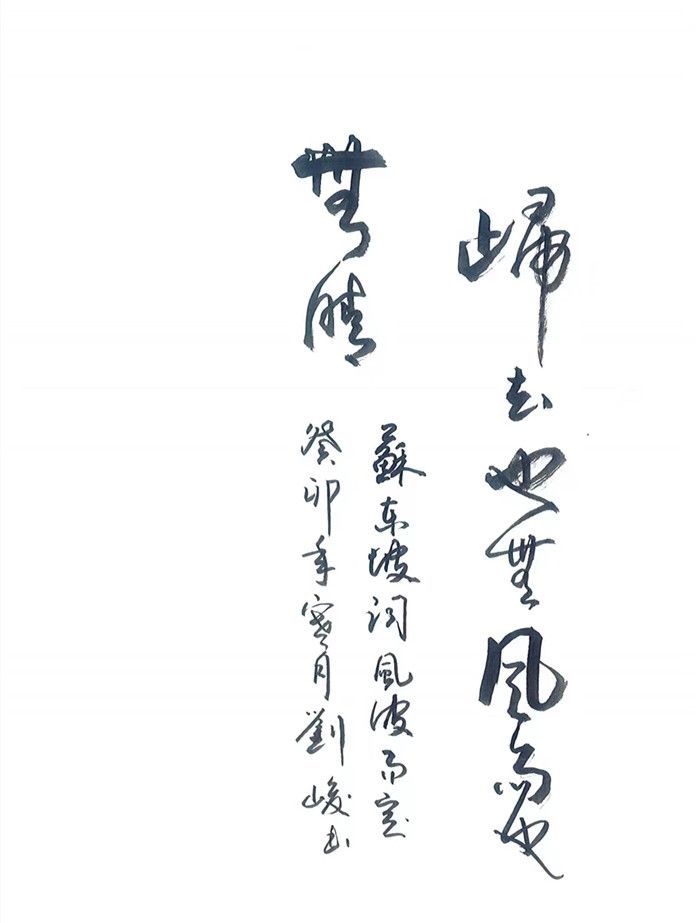 歸去也無風雨也
無晴
蘇东坡词風波定
癸卯年寒月劉峻书